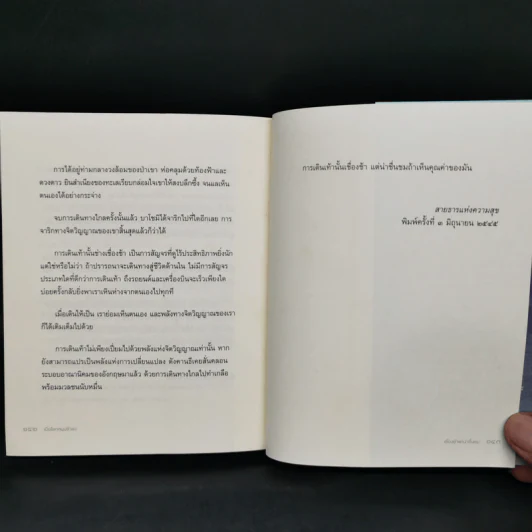 การได้อยู่ท่ามกลางวงล้อมของป่าเขา ห่อคลุมด้วยท้องฟ้าและ
ดวงดาว ยินสำเนียงของทะเลเรียบกล่อมใจเขาให้สงบลึกซึ้ง จนแลเห็น
ตนเองได้อย่างกระจ่าง
จบการเดินทางไกลครั้งนั้นแล้ว บาโชมิได้จาริกไปที่ใดอีกเลย การ
จาริกทางจิตวิญญาณของเขาสิ้นสุดแล้วก็ว่าได้
การเดินเท้านั้นช่างเชื่องช้า เป็นการสัญจรที่ดูไร้ประสิทธิภาพยิ่งนัก
แต่ใช่หรือไม่ว่า ถ้าปรารถนาจะเดินทางสู่ชีวิตด้านใน ไม่มีการสัญจร
ประเภทใดที่ดีกว่าการเดินเท้า ถึงรถยนต์และเครื่องบินจะเร็วเพียงใด
บ่อยครั้งกลับยิ่งพาเราเหินห่างจากตนเองไปทุกที
เมื่อเดินให้เป็น เราย่อมเห็นตนเอง และพลังทางจิตวิญญาณของเรา
ก็ได้เติมเต็มไปด้วย
การเดินเท้าไม่เพียงเปี่ยมไปด้วยพลังแห่งจิตวิญญาณเท่านั้น หาก
ยังสามารถแปรเป็นพลังแห่งการเปลี่ยนแปลง ดังคานธีเคยสั่นคลอน
ระบอบอาณานิคมของอังกฤษมาแล้ว ด้วยการเดินทางไกลไปทำเกลือ
พร้อมมวลชนนับหมื่น
การเดินเท้านั้นเชื่องช้า แต่น่าชื่นชมถ้าเห็นคุณค่าของมัน
สายธารแห่งความสุข
พิมพ์ครั้งที่ ๑ มิถุนายน ๒๕๔๕